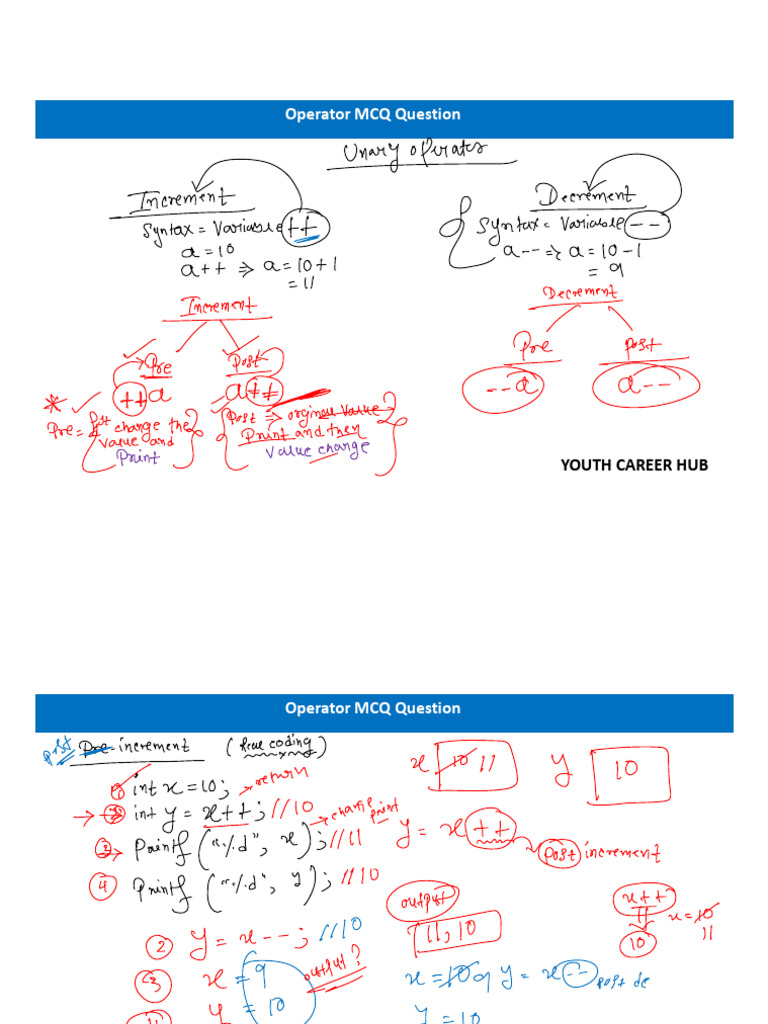 Operator MCQ Question
Unary operators
Increment
Syntax = Variable ++
a = 10
a++ ⇒ a = 10+1
= 11
Decrement
Syntax = Variable --
a-- ⇒ a = 10-1
= 9
Increment
Pre Post
++a a++
Pre = 1st change the
value and
Print
Post ⇒ orginal value
Print and then
Value change
Decrement
Pre Post
--a a--
YOUTH CAREER HUB
Operator MCQ Question
Post Pre increment (
coding)
① int x = 10; return
int y = x++; //10
Printf ("%d", x); //11 change print
④ Printf ("%d", y); //10
x 10 11 y 10
y = x++
Post increment
② y = x--; //10
③ x = 9
y = 10
output?
output
11, 10
x++
11
10
x = 10
11
x = 10 9 y = x-- post de
y = 10